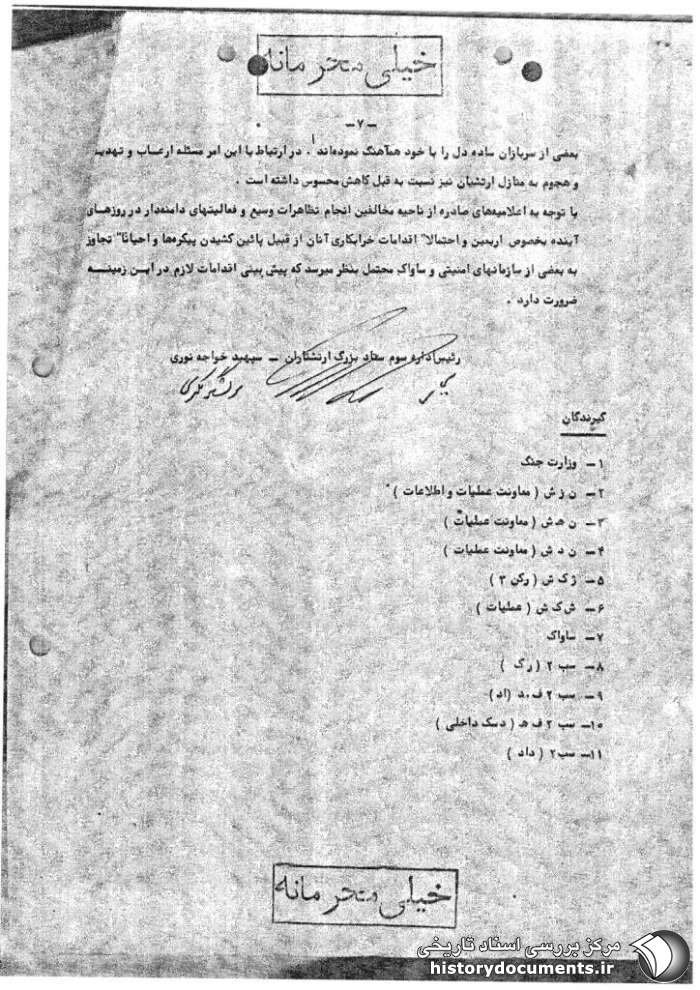 خیلی محرمانه
-۷-
بعضی از سربازان ساده دل را با خود همآهنگ نموده‌اند . در ارتباط با این امر مسئله ارعاب و تهدید
و هجوم به منازل ارتشیان نیز نسبت به قبل کاهش محسوس داشته است .
با توجه به اعلامیه‌های صادره از ناحیه مخالفین انجام تظاهرات وسیع و فعالیتهای دامنه‌دار در روزهای
آینده بخصوص اربعین و احتمالا" اقدامات خرابکاری آنان از قبیل پائین کشیدن پیکره‌ها و احیانا" تجاوز
به بعضی از سازمانهای امنیتی و ساواک محتمل بنظر میرسد که پیش بینی اقدامات لازم در این زمینه
ضرورت دارد .
رئیس اداره سوم ستاد بزرگ ارتشتاران - سپهبد خواجه نوری
گیرندگان
۱- وزارت جنگ
۲- ن ز ش ( معاونت عملیات و اطلاعات )
۳- ن ه ش ( معاونت عملیات )
۴- ن د ش ( معاونت عملیات )
۵- ژ ک ش ( رکن ۳ )
۶- ش ک ش ( عملیات )
۷- ساواک
۸- سب ۲ ( رگ )
۹- سب ۲ ف.د (اد)
۱۰- سب ۲ ف ه ( دسک داخلی )
۱۱- سب۲ ( داد )
خیلی محرمانه
مرکز بررسی اسناد تاریخی
historydocuments.ir